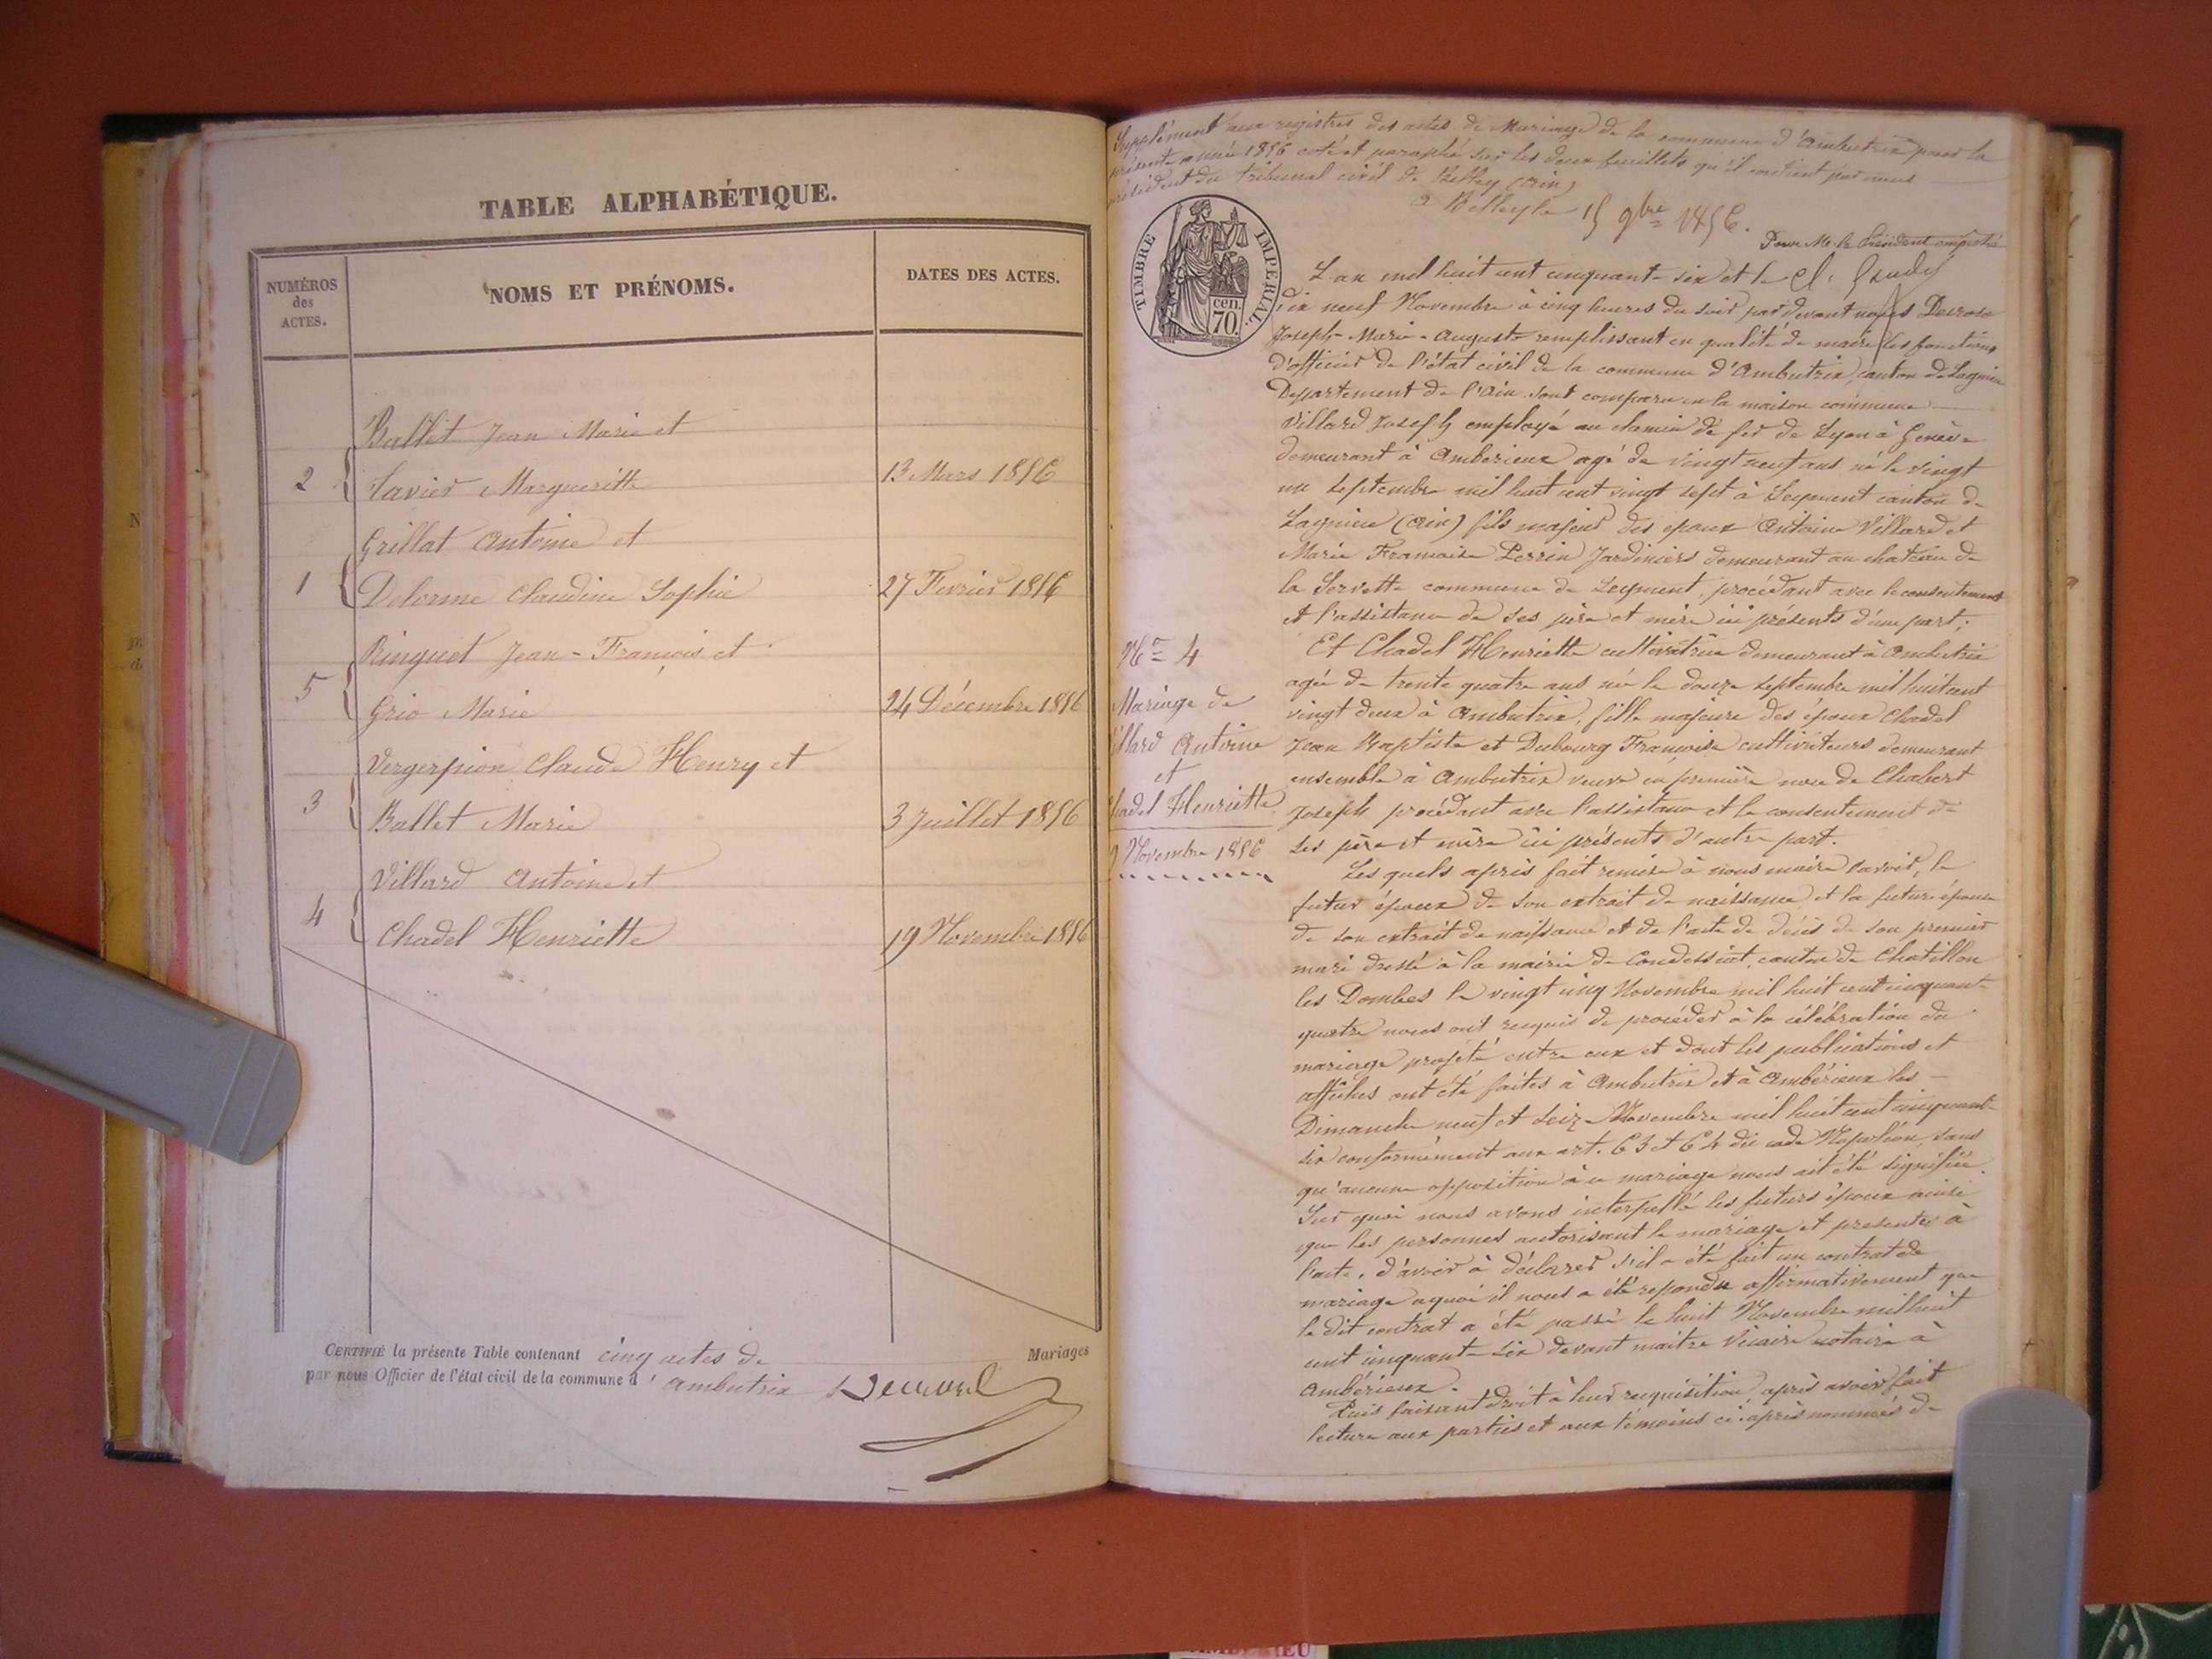 TABLE ALPHABÉTIQUE.
NUMÉROS
des
ACTES.
NOMS ET PRÉNOMS.
DATES DES ACTES.
Ballet Jean Marie et
2 Savier Margueritte 13 Mars 1856
Grillat Antoine et
1 Delorme Claudine Sophie 27 Fevrier 1856
Ringuet Jean-François et
5 Grio Marie 24 Décembre 1856
Vergerpion Claude Henry et
3 Ballet Marie 3 Juillet 1856
Villard Antoine et
4 Chadel Henriette 19 Novembre 1856
CERTIFIÉ la présente Table contenant cinq actes de Mariages
par nous Officier de l'état civil de la commune d'Ambutrix
Supplément aux registres des actes de Mariage de la commune d'Ambutrix pour la
présente année 1856 coté et paraphé sur les deux feuillets qu'il contient par nous
président du Tribunal civil de Belley (Ain)
à Belley le 15 9bre 1856.
Pour Mr le Président empêché
TIMBRE IMPERIAL
70 cen.
L'an mil huit cent cinquante-six et le
dix neuf Novembre à cinq heures du soir par devant nous
Joseph-Marie-Auguste remplissant en qualité de maire les fonctions
d'officier de l'état civil de la commune d'Ambutrix, canton de Lagnieu
Département de l'Ain sont comparu en la maison commune
Villard Joseph employé au chemin de fer de Lyon à Genève
demeurant à Amberieux agé de vingt neuf ans né le vingt
un septembre mil huit cent vingt sept à Leyment canton de
Lagnieu (Ain) fils majeur des epoux Antoine Villard et
Marie Francoise Perrin Jardiniers demeurant au chateau de
la Servette commune de Leyment, procédant avec le consentement
et l'assistance de ses père et mère ici présents d'une part;
No 4
Mariage de
illard Antoine
et
hadel Henriette
9 Novembre 1856
Et Chadel Henriette cultivatrice demeurant à Ambutrix
agée de trente quatre ans né le douze septembre mil huit cent
vingt deux à Ambutrix, fille majeure des époux Chadel
Jean Baptiste et Dubourg Francoise cultivateurs demeurant
ensemble à Ambutrix veuve en première noce de Chabert
Joseph procédant avec l'assistance et le consentement de
ses père et mère ici présents d'autre part.
Les quels après fait remise à nous maire savoir, le
futur époux de son extrait de naissance et la future épouse
de son extrait de naissance et de l'acte de décès de son premier
mari dressé à la mairie de Condeissiat, canton de Chatillon
les Dombes le vingt cinq Novembre mil huit cent cinquante
quatre nous ont requis de procéder à la célébration du
mariage projeté entre eux et dont les publications et
affiches ont été faites à Ambutrix et à Ambérieux les
Dimanche neuf et seize Novembre mil huit cent cinquante
six conformément aux art. 63 et 64 du code Napoléon, sans
qu'aucune opposition à ce mariage nous ait été signifiée.
Sur quoi nous avons interpellé les futurs époux ainsi
que les personnes autorisant le mariage et presentes à
l'acte, d'avoir à déclarer s'il a été fait un contrat de
mariage a quoi il nous a été repondu affirmativement que
le dit contrat a été passé le huit Novembre mil huit
cent cinquante-six devant maitre Vicaire notaire à
Ambérieux.
Puis faisant droit à leur requisition après avoir fait
lecture aux parties et aux témoins ci-après nommés de